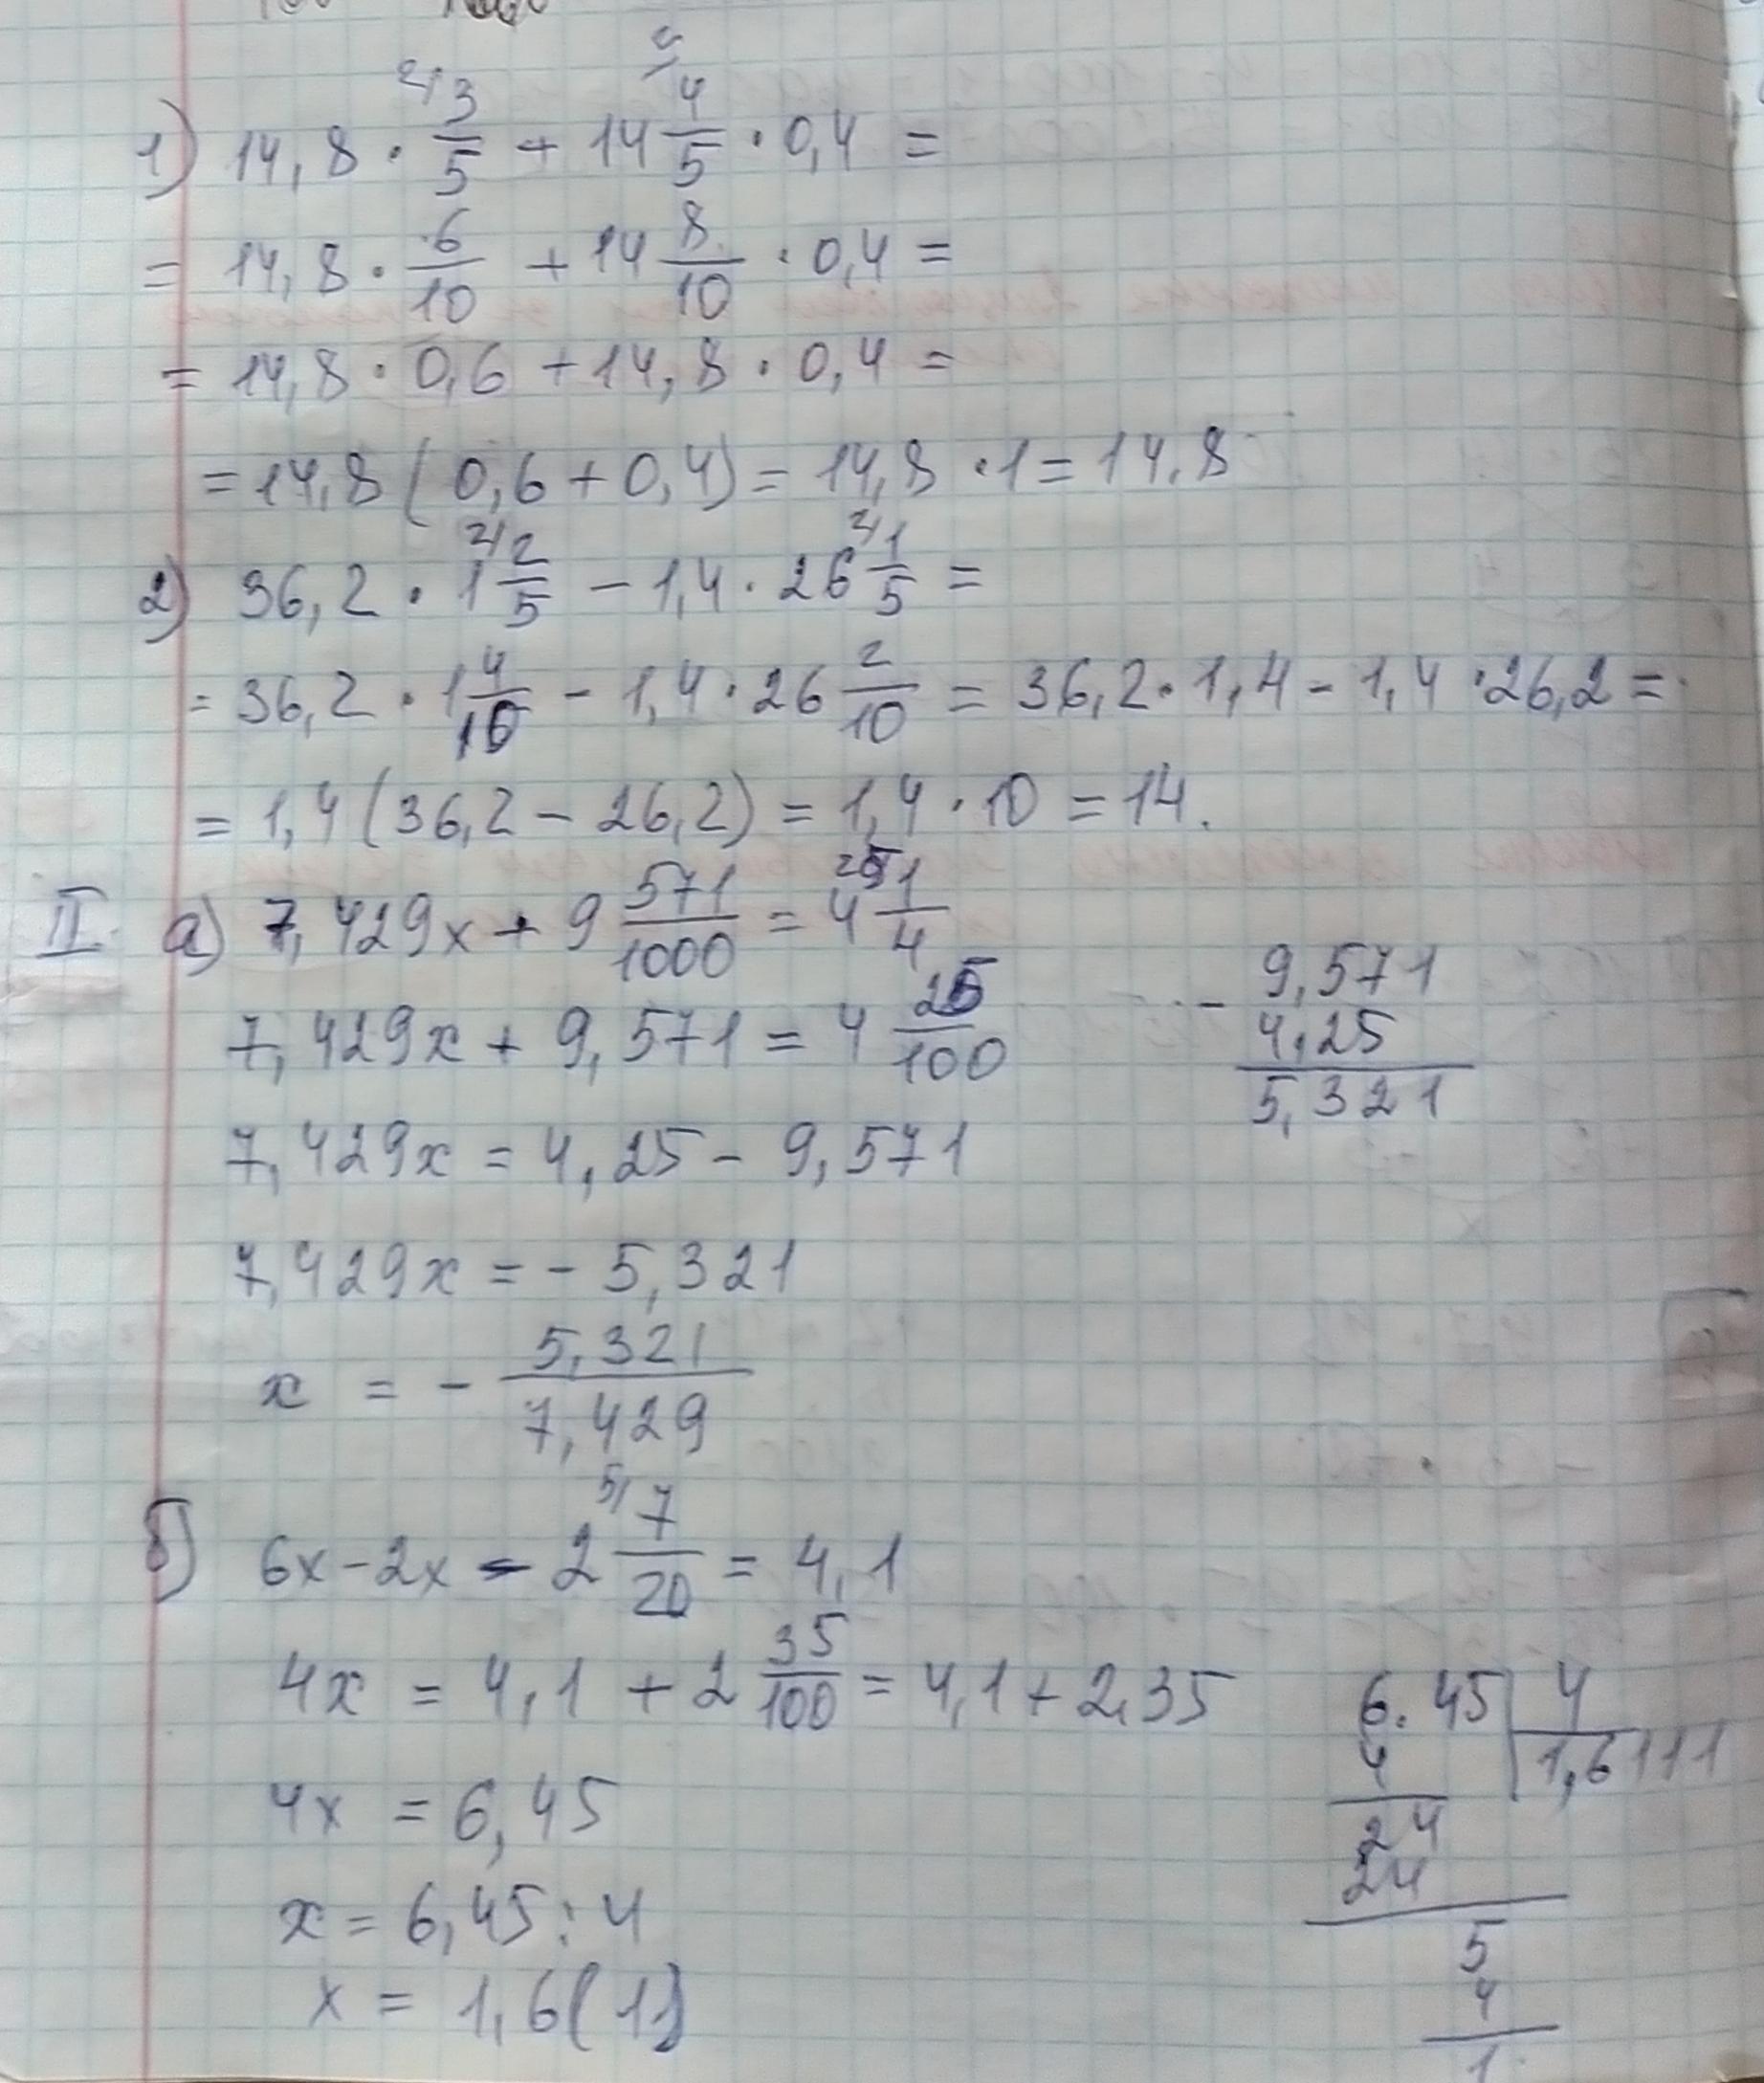 1) 14,8 · 2/ 3/5 + 14 4/5 · 0,4 =
= 14,8 · 6/10 + 14 8/10 · 0,4 =
= 14,8 · 0,6 + 14,8 · 0,4 =
= 14,8 ( 0,6 + 0,4) = 14,8 · 1 = 14,8
2) 36,2 · 1 2/ 2/5 - 1,4 · 26 2/ 1/5 =
= 36,2 · 1 4/10 - 1,4 · 26 2/10 = 36,2 · 1,4 - 1,4 · 26,2 =
= 1,4 (36,2 - 26,2) = 1,4 · 10 = 14.
II. а) 7,429x + 9 571/1000 = 4 25/ 1/4
7,429x + 9,571 = 4 25/100
- 9,571
4,25
5,321
7,429x = 4,25 - 9,571
7,429x = - 5,321
x = - 5,321/7,429
б) 6x - 2x - 2 5/ 7/20 = 4,1
4x = 4,1 + 2 35/100 = 4,1 + 2,35
4x = 6,45
x = 6,45 : 4
x = 1,6(11)
6.45 | 4
4 | 1,6111
24
24
5
4
1